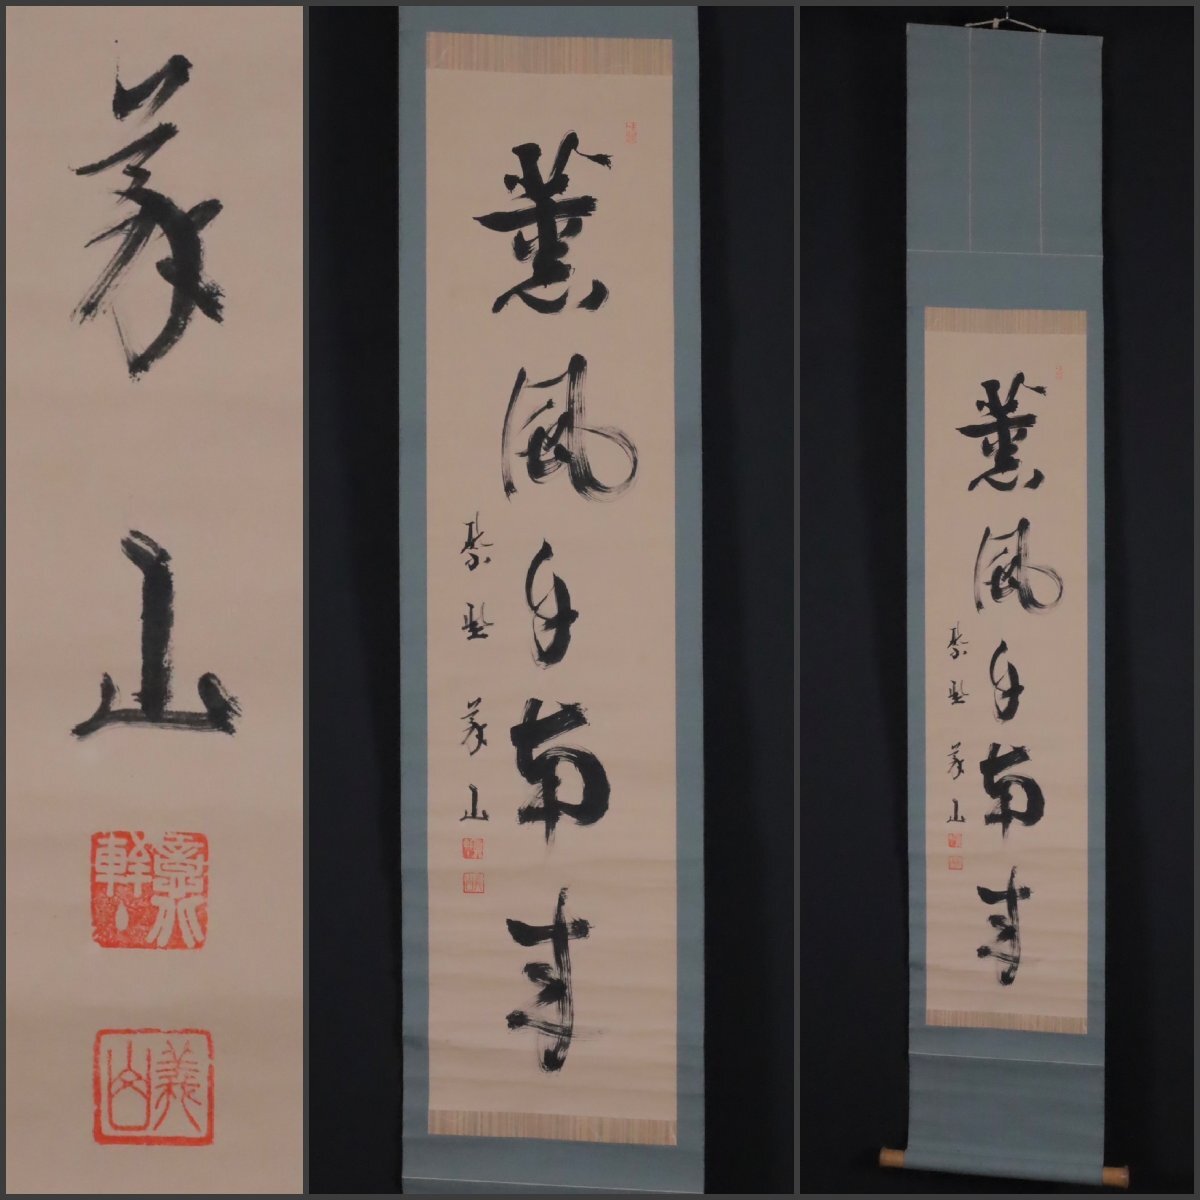 義山
義山
薫風自南来
紫野 義山
薫風自南来
紫野 義山